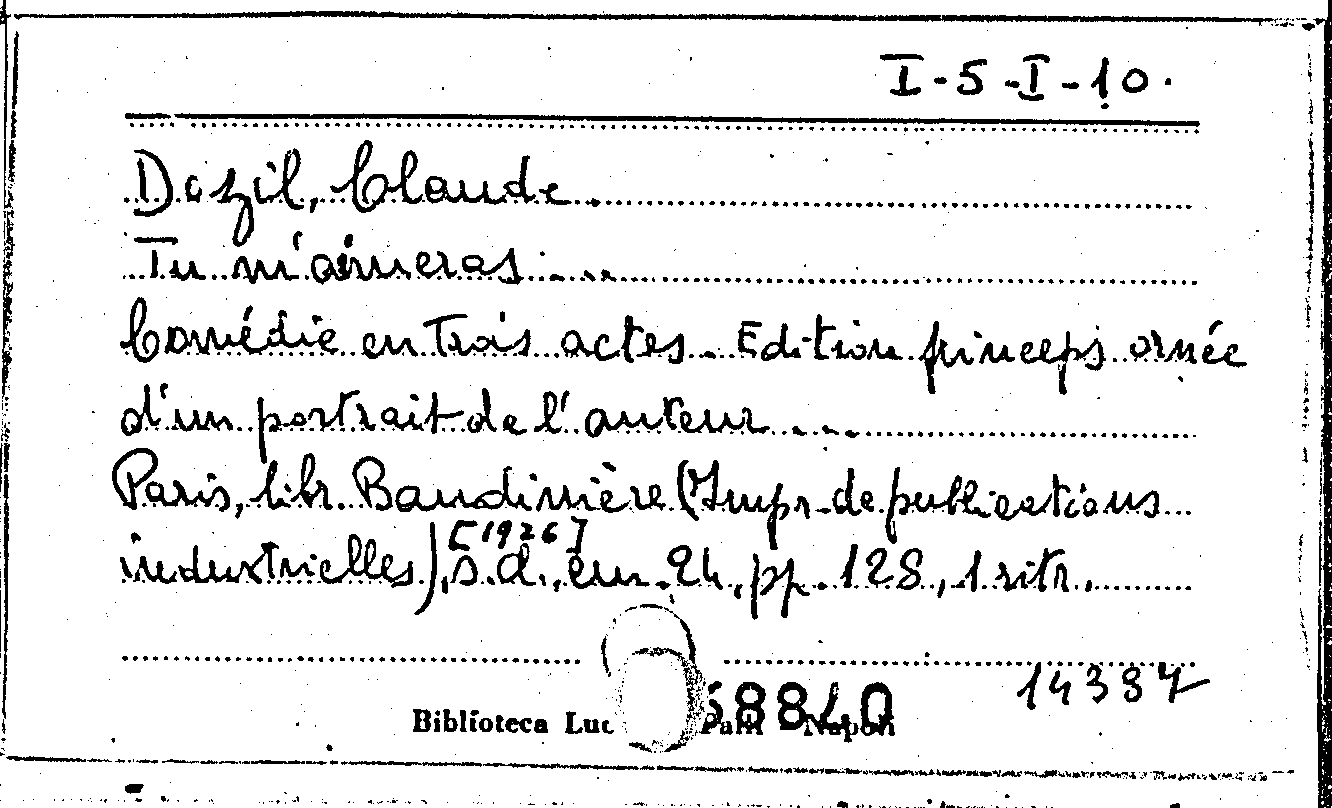 I-5-I-10.
Dazil, Claude.
Tu m'aimeras....
Comédie en trois actes. Edition princeps ornée
d'un portrait de l'auteur....
Paris, libr. Baudinière (Impr. de publications
industrielles), s.d., [1926] cm. 24, pp. 128, 1 ritr.
68840
14337
Biblioteca Napoli